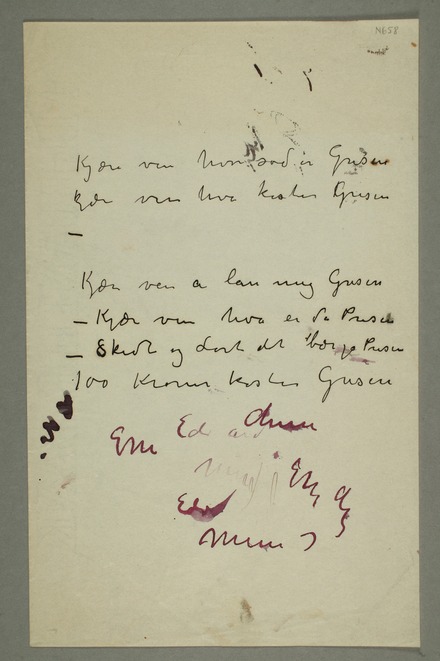 N658
Kjære ven hvor sød er Grisen
Kjære ven hva koster Grisen
–
Kjære ven a lan mig Grisen
– Kjære ven hva er da Prisen
– Skidt og Lort det bær jo Prisen
100 Kroner koster Grisen
EM Ed ard
EM
Ed
Mun